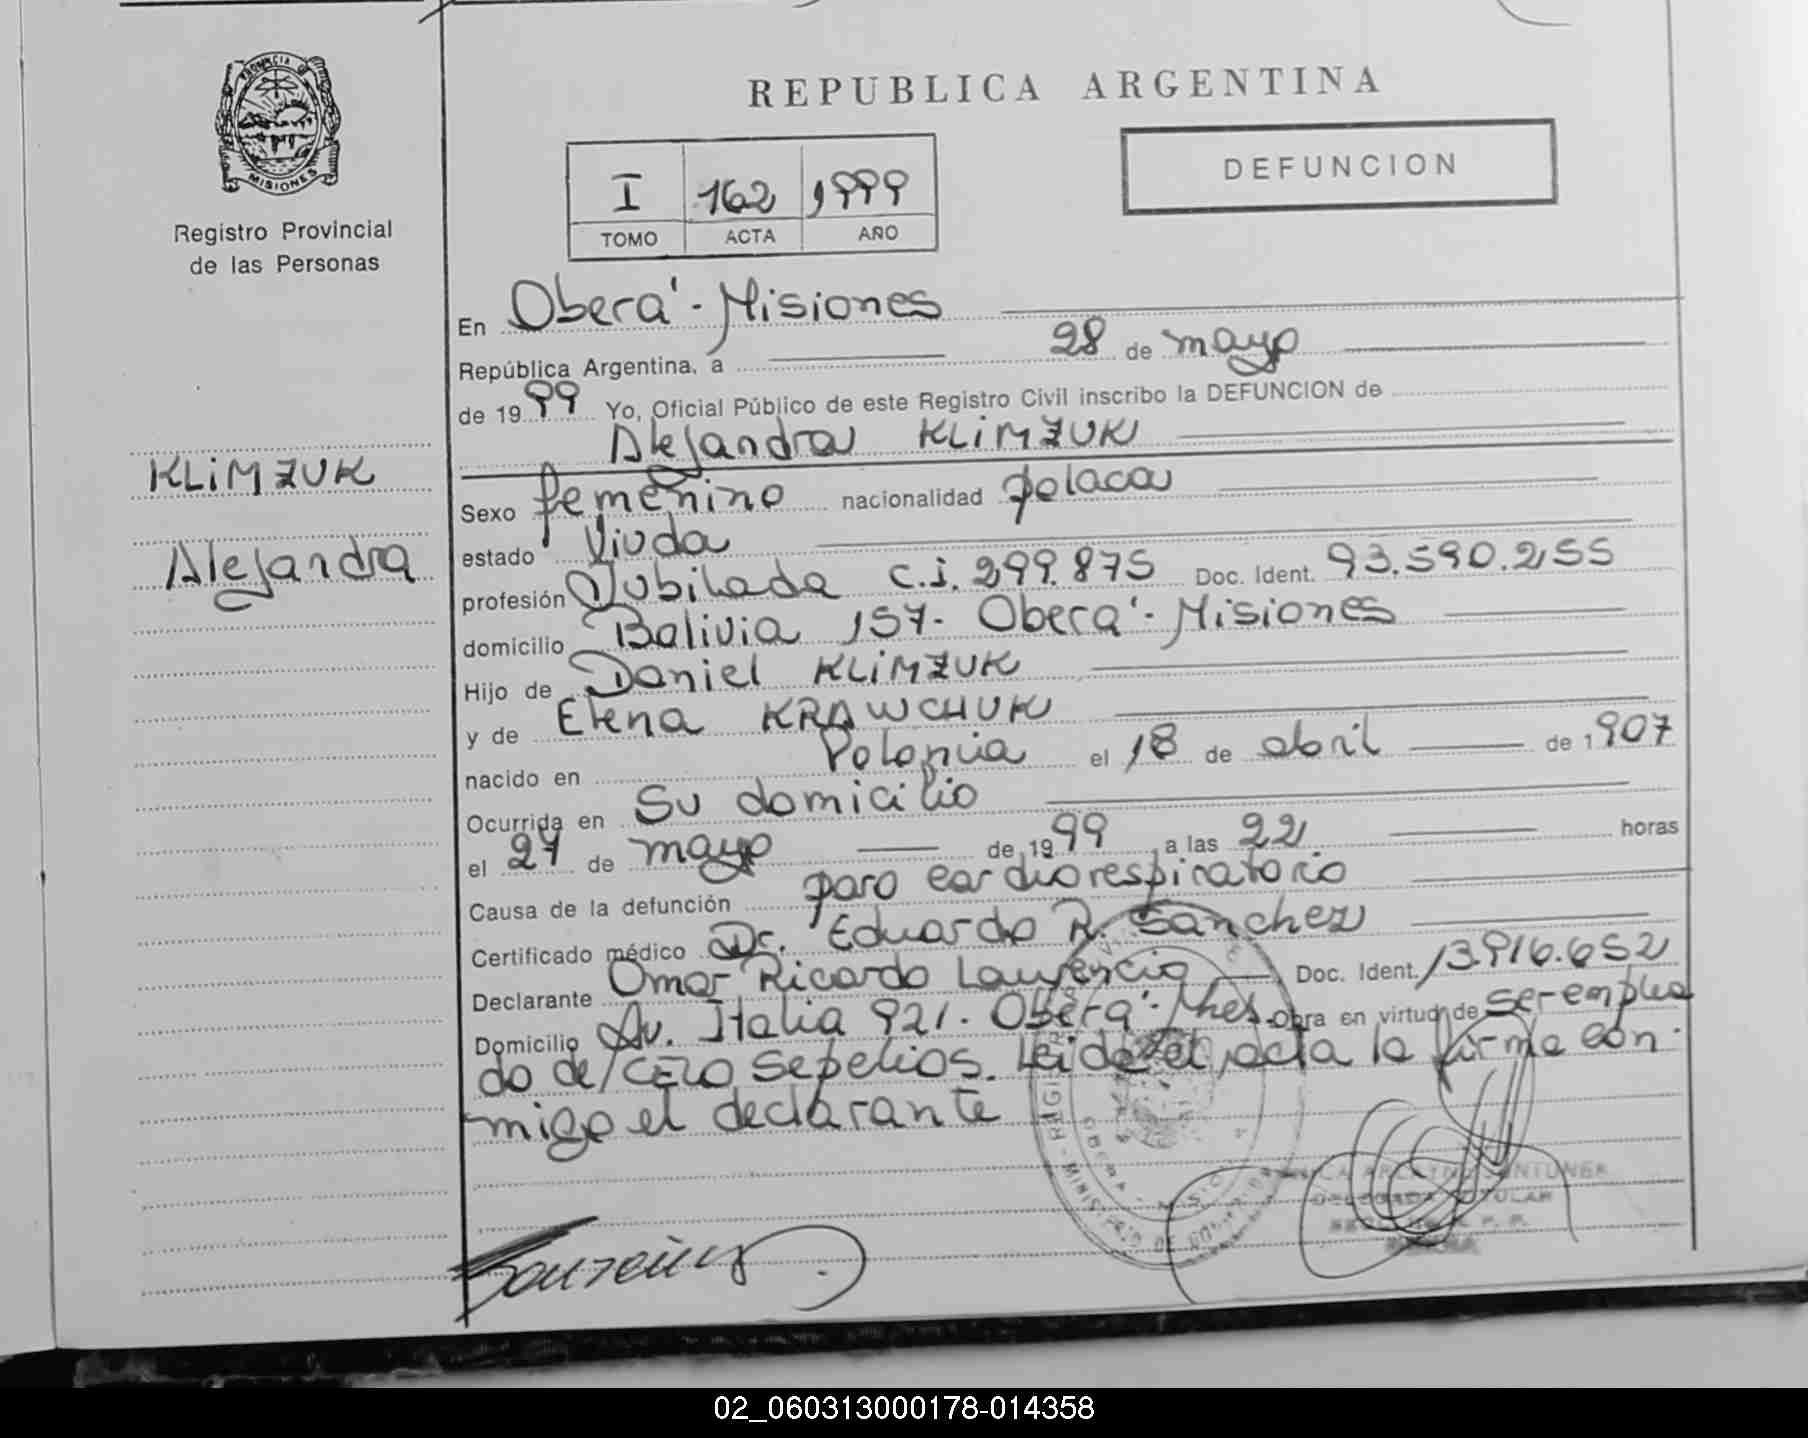 PROVINCIA DE
MISIONES
Registro Provincial
de las Personas
KLIMZUK
Alejandra
REPUBLICA ARGENTINA
I 162 1999
TOMO ACTA AÑO
DEFUNCION
En Oberá - Misiones
República Argentina, a 28 de mayo
de 1999 Yo, Oficial Público de este Registro Civil inscribo la DEFUNCION de
Alejandra KLIMZUK
Sexo femenino nacionalidad polaca
estado Viuda
profesión Jubilada C.I. 299.875 Doc. Ident. 93.590.255
domicilio Bolivia 157- Oberá - Misiones
Hijo de Daniel KLIMZUK
y de Elena KRAWCHUK
nacido en Polonia el 18 de abril de 1907
Ocurrida en Su domicilio
el 27 de mayo de 1999 a las 22 horas
Causa de la defunción paro cardiorespiratorio
Certificado médico Dr. Eduardo R. Sanchez
Declarante Omar Ricardo Laurencio Doc. Ident. 13.916.652
Domicilio Av. Italia 921- Oberá - Mnes. obra en virtud de ser emplea
do de/CELO Sepelios. Leida el acta la firma con-
migo el declarante
02_060313000178-014358